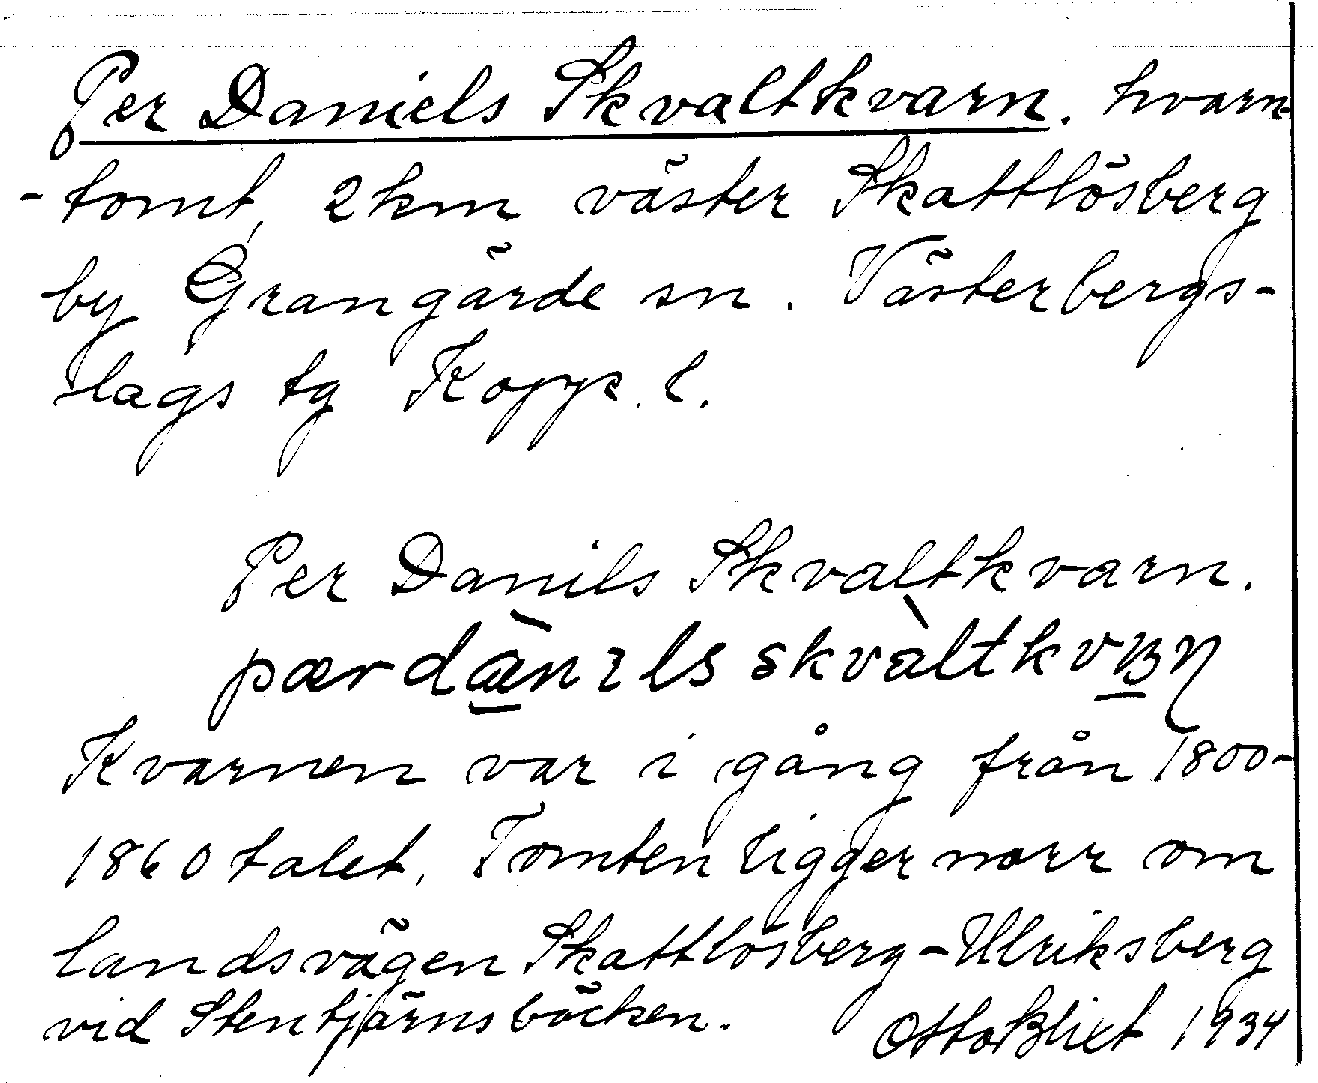 Per Daniels Skvaltkvarn. kvarn-
-tomt, 2 km väster Skattlösberg
by Grangärde sn. Västerbergs-
lags tg Kopp. l.
Per Danils Skvaltkvarn.
Kvarnen var i gång från 1800-
1860 talet. Tomten ligger norr om
landsvägen Skattlösberg-Ulriksberg
vid Stentjärnsbäcken. Otto Blixt 1934